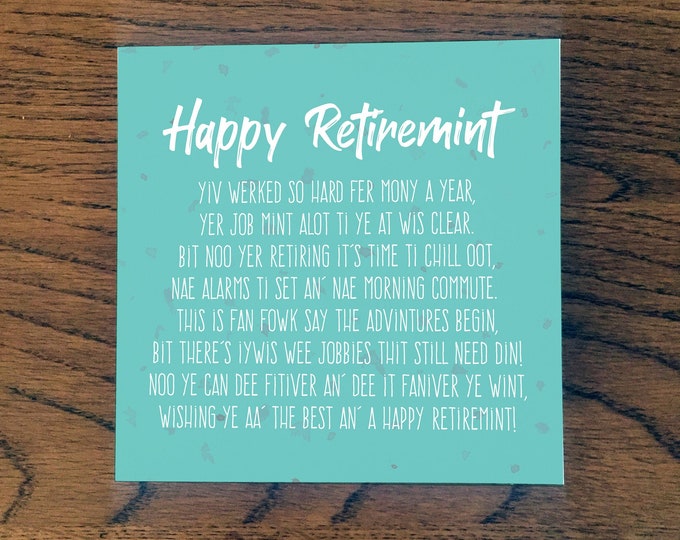 Happy Retiremint
YIV WERKED SO HARD FER MONY A YEAR,
YER JOB MINT ALOT TI YE AT WIS CLEAR.
BIT NOO YER RETIRING IT'S TIME TI CHILL OOT,
NAE ALARMS TI SET AN' NAE MORNING COMMUTE.
THIS IS FAN FOWK SAY THE ADVINTURES BEGIN,
BIT THERE'S IYWIS WEE JOBBIES THIT STILL NEED DIN!
NOO YE CAN DEE FITIVER AN' DEE IT FANIVER YE WINT,
WISHING YE AA' THE BEST AN' A HAPPY RETIREMINT!